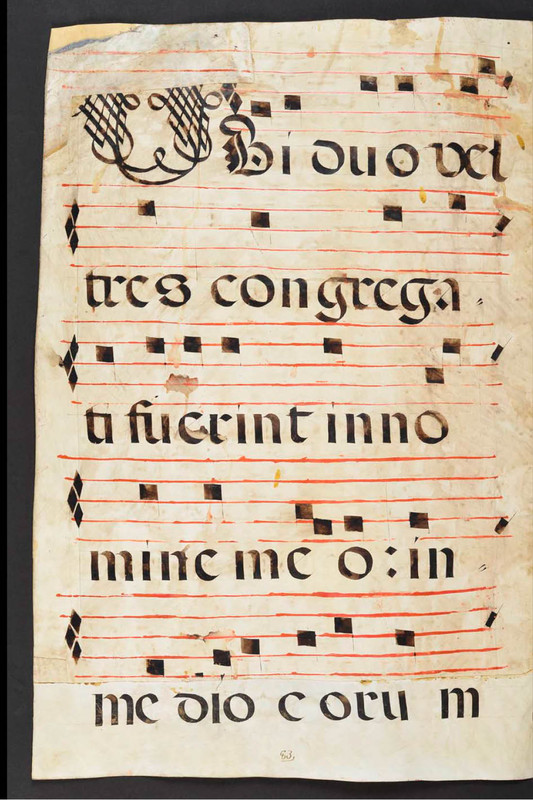 Ubi duo vel
tres congrega
ti fuerint in no
mine me o: in
me dio e oru m
83